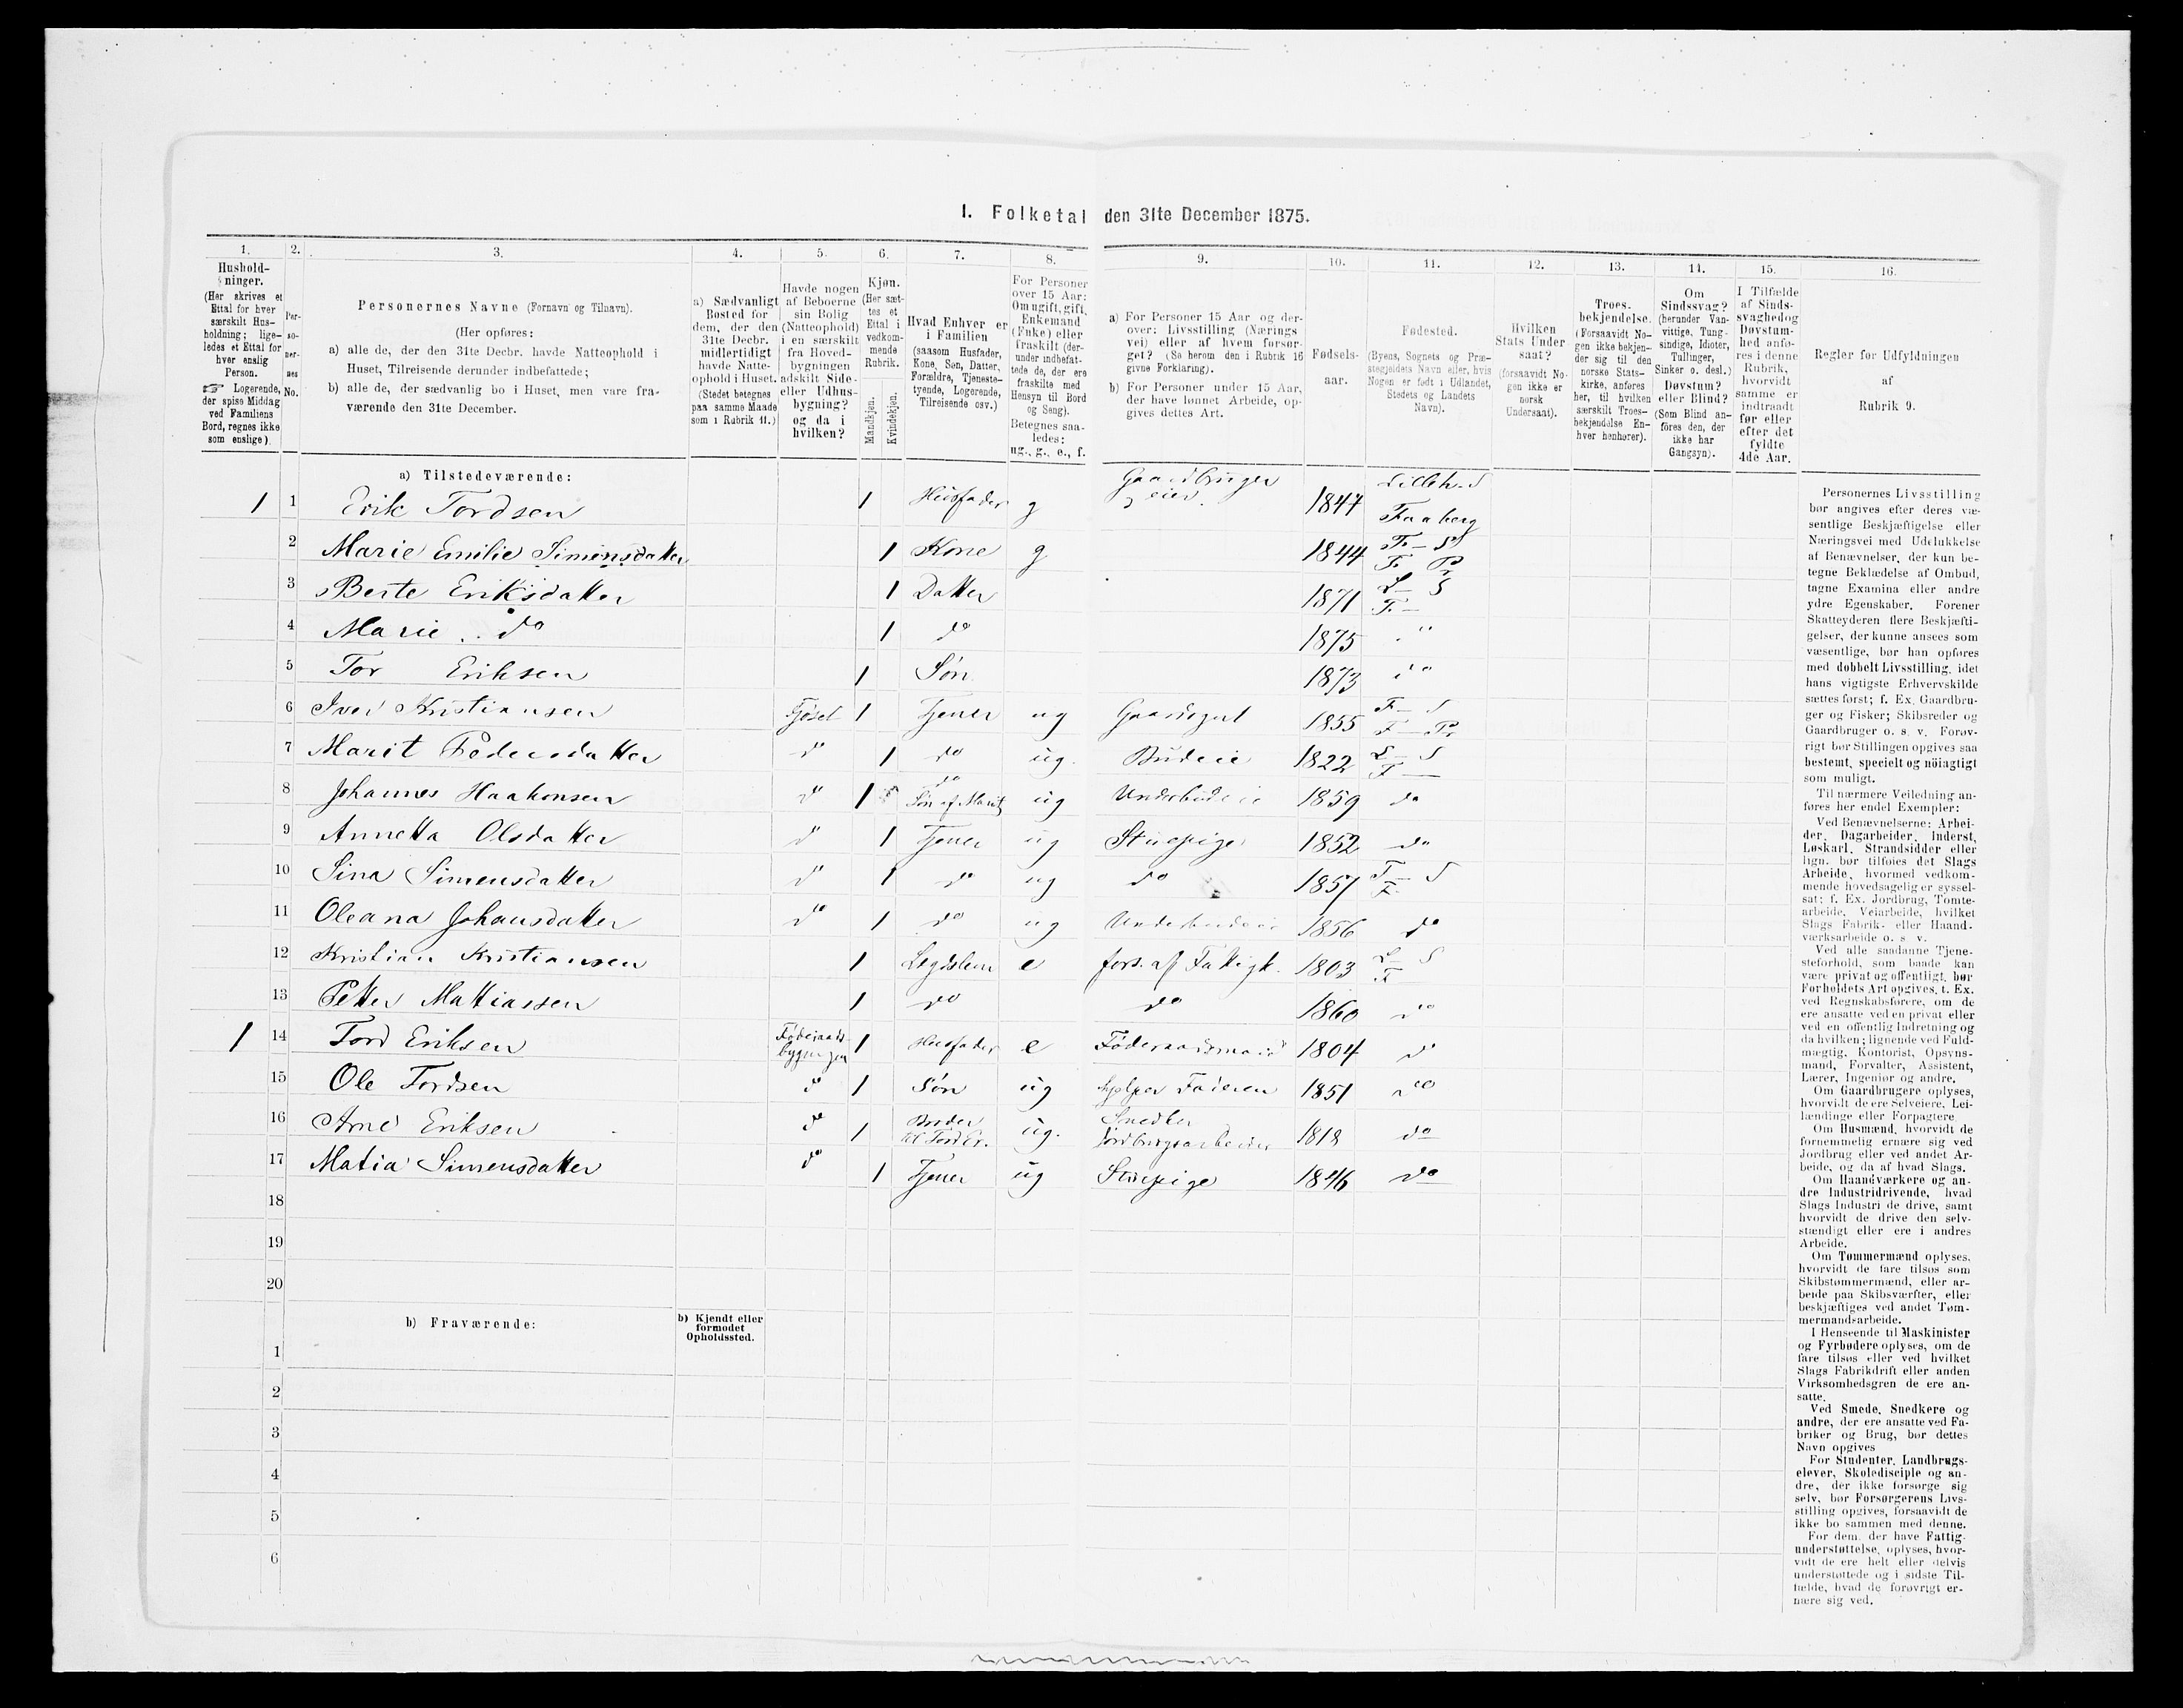 I. Folketal den 31te December 1875.
1. 2. 3. 4. 5. 6. 7. 8. 9. 10. 11. 12. 13. 14. 15. 16.
Husholdninger.
(Her skrives et
Ettal for hver
særskilt Hus-
holdning; lige-
ledes et Ettal for
hver enslig
Person.
☞ Logerende,
der spise Middag
ved Familiens
Bord, regnes ikke
som enslige).
Per-
so-
ner-
nes
No.
Personernes Navne (Fornavn og Tilnavn).
(Her opføres:
a) alle de, der den 31te Decbr. havde Natteophold i
Huset, Tilreisende derunder indbefattede;
b) alle de, der sædvanlig bo i Huset, men vare fra-
værende den 31te December.
a) Sædvanligt
Bosted for
dem, der den
31te Decbr.
midlertidigt
havde Natte-
ophold i Huset.
(Stedet betegnes
paa samme Maade
som i Rubrik 11.)
Havde nogen
af Beboerne
sin Bolig
(Natteophold)
i en særskilt
fra Hoved-
bygningen
adskilt Side-
eller Udhus-
bygning?
og da i
hvilken?
Kjøn.
(Her sæt-
tes et
Ettal i
vedkom-
mende
Rubrik.
Mandkjøn.
Kvindekjøn.
Hvad Enhver er
i Familien
(saasom Husfader,
Kone, Søn, Datter,
Forældre, Tjeneste-
tyende, Logerende,
Tilreisende osv.)
For Personer
over 15 Aar:
Om ugift, gift,
Enkemand
(Enke) eller
fraskilt (der-
under indbefat-
tede de, der ere
fraskilte med
Hensyn til Bord
og Seng).
Betegnes saa-
ledes:
ug., g., e., f.
a) For Personer 15 Aar og der-
over: Livsstilling (Nærings-
vei) eller af hvem forsør-
get? (Se herom den i Rubrik 16
givne Forklaring).
b) For Personer under 15 Aar,
der have lønnet Arbeide, op-
gives dettes Art.
Fødsels-
aar.
Fødested.
(Byens, Sognets og Præ-
stegjeldets Navn eller, hvis
Nogen er født i Udlandet,
Stedets og Landets
Navn).
Hvilken
Stats Under
saat?
(forsaavidt No-
gen ikke er
norsk
Undersaat).
Troes-
bekjendelse.
(Forsaavidt No-
gen ikke bekjen-
der sig til den
norske Stats-
kirke, anføres
her, til hvilken
særskilt Troes-
bekjendelse En-
hver henhører).
Om
Sindssvag?
(herunder Van-
vittige, Tung-
sindige, Idioter,
Tullinger,
Sinker o. desl.)
Døvstum?
eller Blind?
(Som Blind an-
føres den, der
ikke har
Gangsyn).
I Tilfælde
af Sinds-
svaghed og
Døvstum-
hed anfø-
res i denne
Rubrik,
hvorvidt
samme er
indtraadt
før eller
efter det
fyldte
4de Aar.
Regler for Udfyldningen
af
Rubrik 9.
a) Tilstedeværende:
1 1 Erik Tordsen 1 Husfader g Gaardbruger og eier. 1847 Lilleh. S Faaberg
2 Marie Emilie Simensdatter 1 Kone g 1844 F- S F. Pr
3 Berte Eriksdatter 1 Datter 1871 L- S F. -
4 Marie do 1 do 1875 "
5 Tor Eriksen 1 Søn 1873 do
6 Iver Kristiansen Fjøset 1 Tjener ug Gaardsgut 1855 F- S F- Pr
7 Marit Pedersdatter do 1 do ug. Budeie 1822 L- S F-
8 Johannes Haakonsen do 1 do Søn af Marit ug Underbudeie 1859 do
9 Annetta Olsdatter do 1 Tjener ug Stuepige 1852 do
10 Sina Simensdatter do 1 do ug do 1857 F- S F.
11 Oleana Johansdatter do 1 do ug Underbudeie 1856 do
12 Kristian Kristiansen 1 Lægdslem e fors. af Fattigk. 1803 L- S F-
13 Petter Mattiassen 1 do do 1860 do
1 14 Tord Eriksen Føderaads-bygningen 1 Husfader e Føderaadsmand 1804 do
15 Ole Tordsen do 1 Søn ug hjelper Faderen 1851 do
16 Arne Eriksen do 1 Broder til Tord Er. ug. Snedker Jordbrugsarbeider 1818 do
17 Matia Simensdatter do 1 Tjener ug Stuepige 1846 do
18
19
20
b) Fraværende:
b) Kjendt eller
formodet
Opholdssted.
1
2
3
4
5
6
Personernes Livsstilling
bør angives efter deres væ-
sentlige Beskjæftigelse eller
Næringsvei med Udelukkelse
af Benævnelser, der kun be-
tegne Beklædelse af Ombud,
tagne Examina eller andre
ydre Egenskaber. Forener
Skatteyderen flere Beskjæfti-
gelser, der kunne ansees som
væsentlige, bør han opføres
med dobbelt Livsstilling, idet
hans vigtigste Erhvervskilde
sættes først; f. Ex. Gaardbru-
ger og Fisker; Skibsreder og
Gaardbruger o. s. v. Forøv-
rigt bør Stillingen opgives saa
bestemt, specielt og nöiagtigt
som muligt.
Til nærmere Veiledning an-
føres her endel Exempler:
Ved Benævnelserne: Arbei-
der, Dagarbeider, Inderst,
Løskarl, Strandsidder eller
lign. bør tilføies det Slags
Arbeide, hvormed vedkom-
mende hovedsagelig er syssel-
sat; f. Ex. Jordbrug, Tomte-
arbeide, Veiarbeide, hvilket
Slags Fabrik- eller Haand-
værksarbeide o. s. v.
Ved alle saadanne Tjene-
steforhold, som baade kan
være privat og offentligt, bør
Forholdets Art opgives, t. Ex.
ved Regnskabsførere, om de
ere ansatte ved en privat eller
ved en offentlig Indretning og
da hvilken; lignende ved Fuld-
mægtig, Kontorist, Opsyns-
mand, Forvalter, Assistent,
Lærer, Ingeniør og andre.
Om Gaardbrugere oplyses,
hvorvidt de ere Selveiere, Lei-
lændinge eller Forpagtere
Om Husmænd, hvorvidt de
fornemmelig ernære sig ved
Jordbrug eller ved andet Ar-
beide, og da af hvad Slags.
Om Haandværkere og an-
dre Industridrivende, hvad
Slags Industri de drive, samt
hvorvidt de drive den selv-
stændigt eller ere i andres
Arbeide.
Om Tømmermænd oplyses,
hvorvidt de fare tilsøs som
Skibstømmermænd, eller ar-
beide paa Skibsværfter, eller
beskjæftiges ved andet Tøm-
mermandsarbeide.
I Henseende til Maskinister
og Fyrbødere oplyses, om de
fare tilsøs eller ved hvilket
Slags Fabrikdrift eller anden
Virksomhedsgren de ere an-
satte.
Ved Smede, Snedkere og
andre, der ere ansatte ved Fa-
briker og Brug, bør dettes
Navn opgives
For Studenter, Landbrugs-
elever, Skoledisciple og an-
dre, der ikke forsørge sig
selv, bør Forsørgerens Livs-
stilling opgives, forsaavidt de
ikke bo sammen med denne.
For dem, der have Fattig-
understøttelse, oplyses, hvor-
vidt de ere helt eller delvis
understøttede og i sidste Til-
fælde, hvad de forøvrigt er-
nære sig ved.